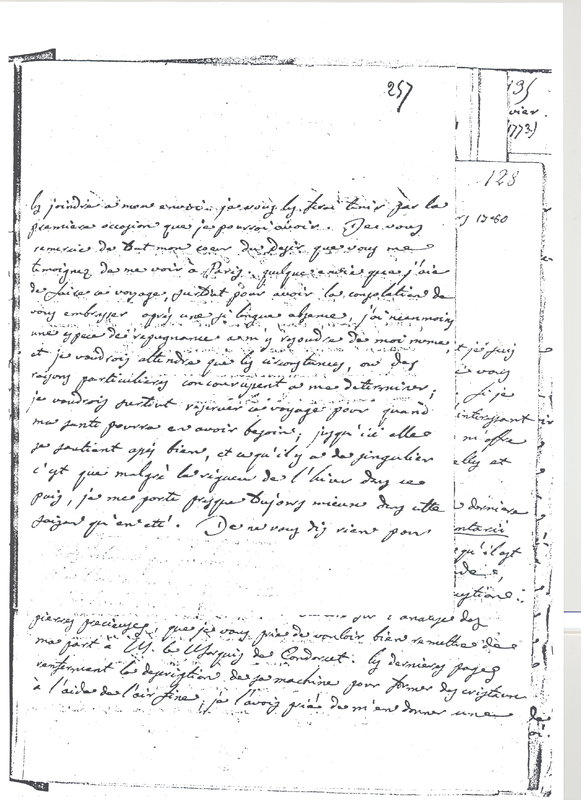 257
les joindre a mon envoi. je vous les ferai tenir par la
premiere occasion que je pourrai avoir. Je vous
remercie de tout mon coeur du desir que vous me
temoignez de me voir à Paris. quelque envie que j'aie
de faire ce voyage, surtout pour avoir la consolation de
vous embrasser après une si longue absence, j'ai neanmoins
une espece de repugnance a m'y resoudre de moi meme,
et je voudrois attendre que les circonstances, ou des
raisons particulieres concourussent a me determiner;
je voudrois surtout reserver ce voyage pour quand
ma santé pourra en avoir besoin; jusqu'ici elle
se soutient assez bien, et ce qu'il y a de singulier
c'est que malgré la rigueur de l'hiver dans ce
pais, je me porte presque toujours mieux dans cette
saison qu'en eté. Je ne vous dis rien pour
l'analyse des
pierres precieuses, que je vous prie de vouloir bien remettre de
ma part à M. le Marquis de Condorcet. les dernieres pages
renferment la description de sa machine pour former des cristaux
à l'aide de l'air fixe; je l'avois prié de m'en donner une
135
vier.
1773)
128
1780
et je suis
vous
Si je
interessant
ni offre
elles et
derniere
qu'il est
de